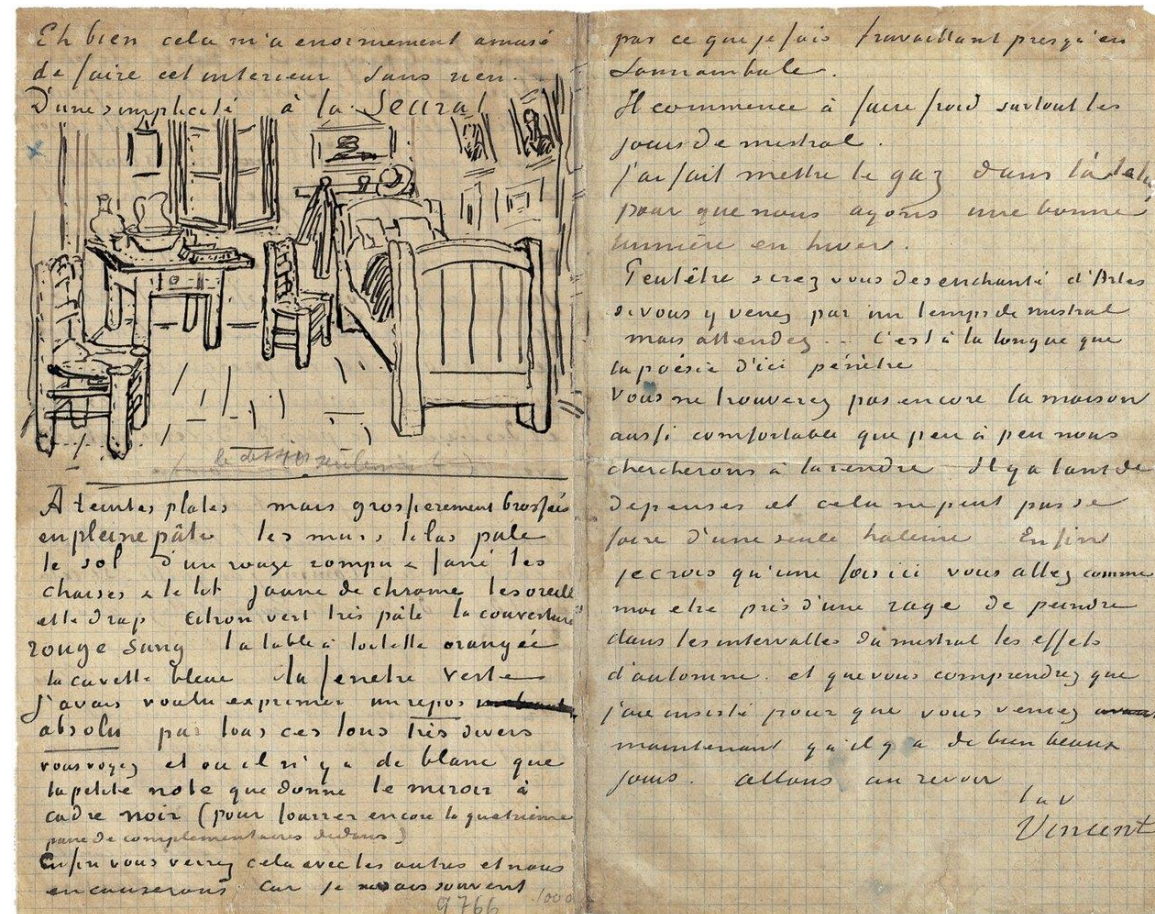 Eh bien cela m'a enormement amusé
de faire cet interieur sans rien.
D'une simplicité à la Seurat
le dessin seulement
A teintes plates mais grossierement brossées
en pleine pâte les murs lilas pale
le sol d'un rouge rompu & fané les
chaises & le lit jaune de chrome les oreill
et le drap citron vert très pâle la couverture
rouge sang la table à toilette orangée
la cuvette bleue la fenetre verte
j'avais voulu exprimer un repos
absolu par tous ces tons très divers
vous voyez et où il n'y a de blanc que
la petite note que donne le miroir à
cadre noir (pour fourrer encore la quatrième
paire de complementaires dedans)
Enfin vous verrez cela avec les autres et nous
en causerons car je ne sais souvent
9766
1000
par ce que je fais travaillant presqu'en
somnambule.
Il commence à faire froid surtout les
jours de mistral.
J'ai fait mettre le gaz dans l'atel
pour que nous ayons une bonne
lumière en hiver.
Peutêtre serez vous desenchanté d'Arles
si vous y venez par un temps de mistral
mais attendez... C'est à la longue que
la poésie d'ici pénètre
Vous ne trouverez pas encore la maison
aussi comfortable que peu à peu nous
chercherons à la rendre Il y a tant de
depenses et cela ne peut pas se
faire d'une seule haleine Enfin
je crois qu'une fois ici vous allez comme
moi etre pris d'une rage de peindre
dans les intervalles du mistral les effets
d'automne. et que vous comprendrez que
j'aie insisté pour que vous veniez
maintenant qu'il y a de bien beaux
jours. allons au revoir
t a v
Vincent